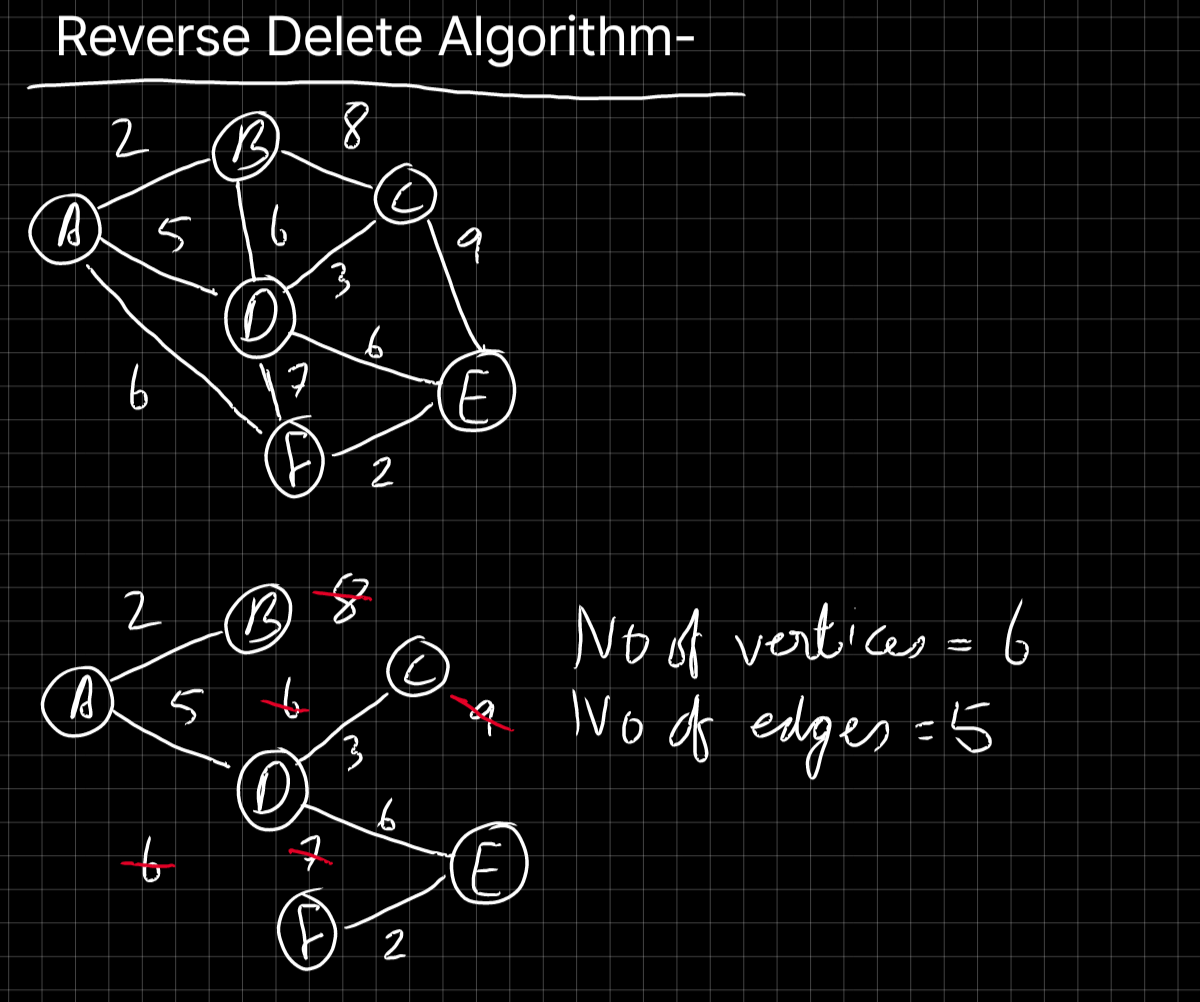 Reverse Delete Algorithm-
2 B 8
A 5 6 C 9
3
D 6
6 7 E
F 2
2 B 8
A 5 6 C 9
3
D 6
6 7 E
F 2
No of vertices = 6
No of edges = 5